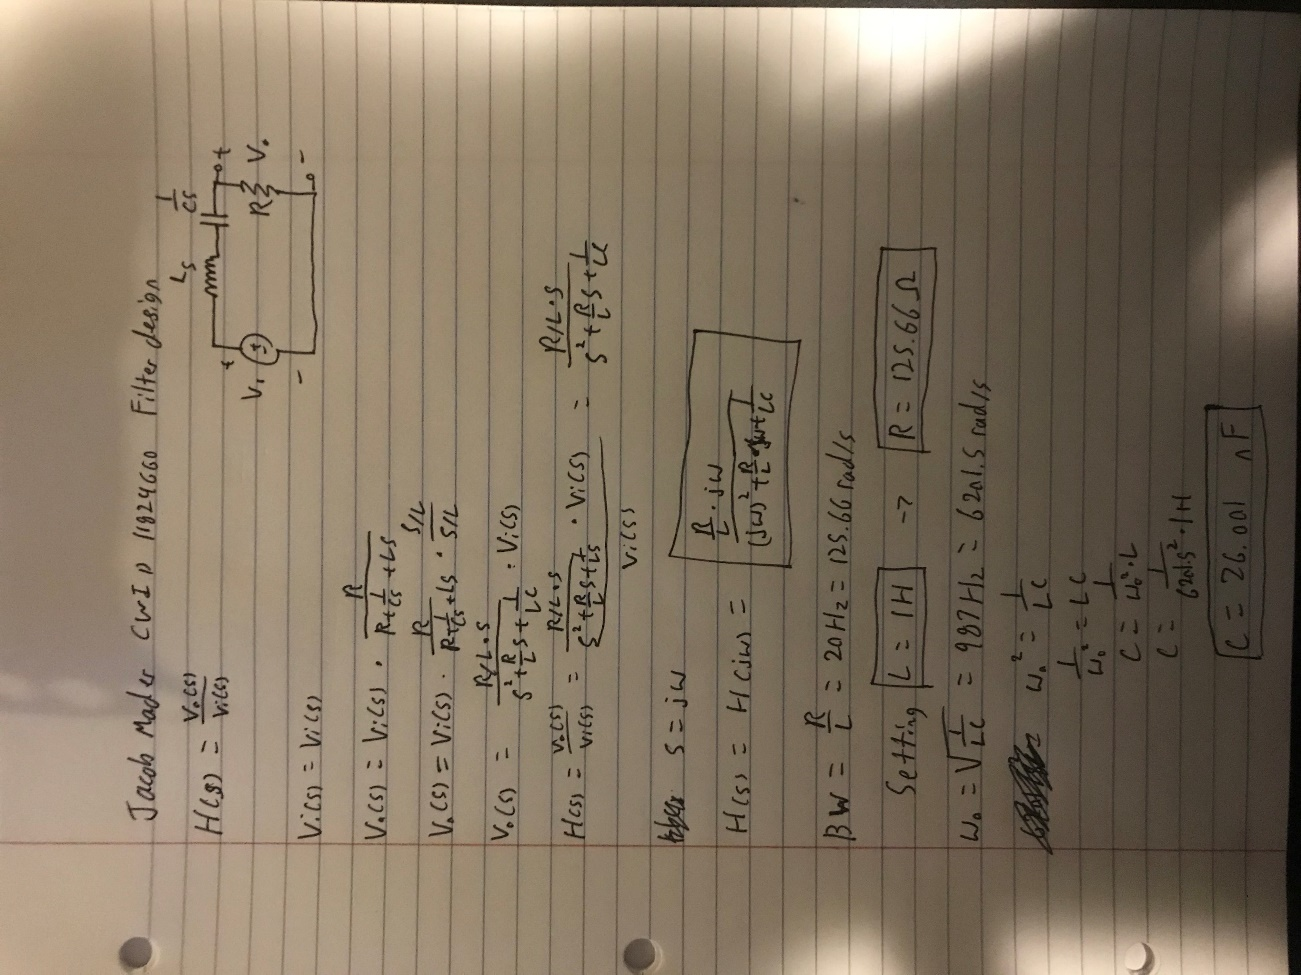 Jacob Mader CWID 11924660 Filter design
H(s) = Vo(s)/Vi(s)
Ls 1/Cs
+ + Vi - R Vo -
Vi(s) = Vi(s)
Vo(s) = Vi(s) · R/(R+1/Cs+Ls)
Vo(s) = Vi(s) · R/(R+1/Cs+Ls) · S/L / S/L
Vo(s) = R/L·s / (s²+R/L s+1/LC) · Vi(s)
H(s) = Vo(s)/Vi(s) = R/L·s / (s²+R/L s+1/LC) · Vi(s) / Vi(s) = R/L·s / (s²+R/L s+1/LC)
s = jω
H(s) = H(jω) = R/L · jω / ((jω)²+R/L·jω+1/LC)
BW = R/L = 20Hz = 125.66 rad/s
Setting L = 1H -> R = 125.66Ω
ωo = √(1/LC) = 987Hz = 6201.5 rad/s
ωo² = 1/LC
1/ωo² = LC
C = 1/ωo²·L
C = 1/6201.5²·1H
C = 26.001 nF